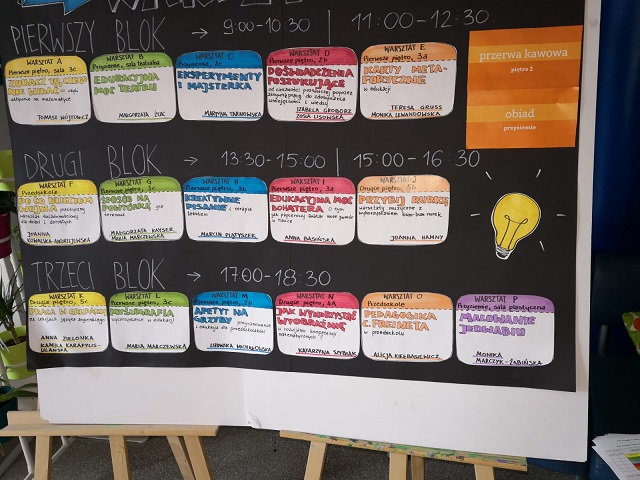 PIERWSZY BLOK → 9:00-10:30 | 11:00-12:30
WARSZTAT A
Pierwsze piętro, sala 3c
TOMASZ WÓJTOWICZ
WARSZTAT B
Przyziemie, sala teatralna
EDUKACYJNA
MOC TEATRU
MAŁGORZATA ŻUAĆ
WARSZTAT C
Pierwsze piętro, 2c
EKSPERYMENTY
I MAJSTERKA
MARTYNA TARNOWSKA
WARSZTAT D
Pierwsze piętro, 2b
DOŚWIADCZENIA
POSZUKUJĄCE
IZABELA GROBORZ
ZOSIA LISOWSKA
WARSZTAT E
Pierwsze piętro, 3a
KARTY META-
FORYCZNE
w edukacji
TERESA GRUSS
MONIKA LEWANDOWSKA
przerwa kawowa
piętro 2
obiad
przyziemie
DRUGI BLOK → 13:30-15:00 | 15:00-16:30
WARSZTAT F
Przedszkole
PO CO DZIECIOM
JOANNA
KOWALSKA-ANDRZEJEWSKA
WARSZTAT G
Pierwsze piętro, 3c
MAŁGORZATA KAYSER
MARIA MARCZEWSKA
WARSZTAT H
Pierwsze piętro, 3b
KREATYWNE
PISANIE
MARCIN PIATYSZEK
WARSZTAT I
Pierwsze piętro, 3a
EDUKACYJNA MOC
BOHATERA
ANNA BASIŃSKA
WARSZTAT J
Drugie piętro, 6b
PRZYBIJ RURKĘ
warsztaty muzyczne z
wykorzystaniem bum bum rurek
JOANNA HAMNY
TRZECI BLOK → 17:00-18:30
WARSZTAT K
Drugie piętro, 5c
PRACA W GRUPACH
na lekcjach języka angielskiego
ANNA ZIELONKA
KAMILA KARAPULIS-
UŁAŃSKA
WARSZTAT L
Pierwsze piętro, 3c
w edukacji
MARIA MARCZEWSKA
WARSZTAT M
Drugie piętro, 2b
APETYT NA
LUDWIKA MICHAŁOWSKA
WARSZTAT N
Drugie piętro, 4a
JAK WYKORZYSTAĆ
WYOBRAŹNIĘ
w rozwijaniu kompetencji
matematycznych?
KATARZYNA SZYBIAK
WARSZTAT O
Przedszkole
PEDAGOGIKA
C. FREINETA
w przedszkolu
ALICJA KIEŁBASIEWICZ
WARSZTAT P
Przyziemie, sala plastyczna
MALOWANIE
JEDWABIU
MONIKA
MARCZYK-ŻABIŃSKA